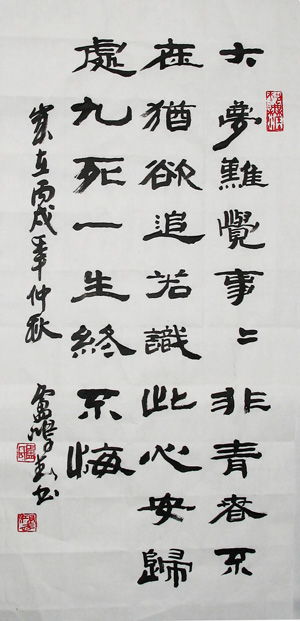 大夢難覺事二非青春不
在猶欲追若識此心安歸
處九死一生終不悔
歲在丙戌年仲秋